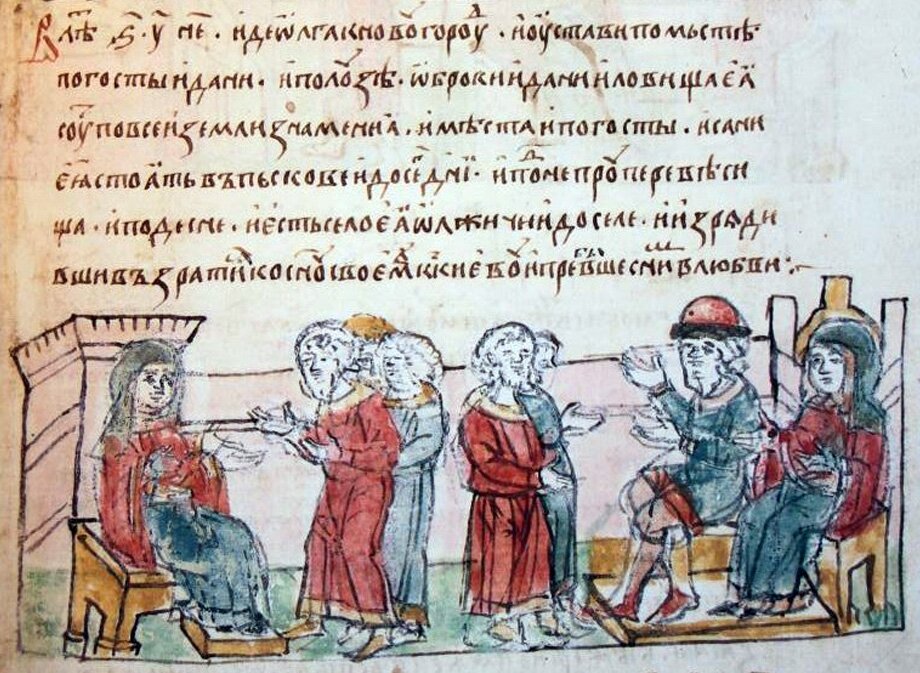 В лѣⷮ ҂ѕ҃ · у҃ н҃е · иде ѡлга к новогороⷣу · и оустави по мьстѣ
погосты и дани · и по лоузѣ · ѡброки и дани и ловища еꙗ
соуⷮ по всеи земли знамениꙗ · и мѣста и погосты · и сани
еꙗ стоꙗть въ пьскове и до сеⷢ҇ дн҃и · и по днепроу перевѣси
ща · и по десне · и есть село еꙗ ѡлжичи и доселе · и изрѧди
вши възратиⷭ҇ к сн҃оу своеⷨу къ киевоу и пребⷶвше с ниⷨ в любви ⁘